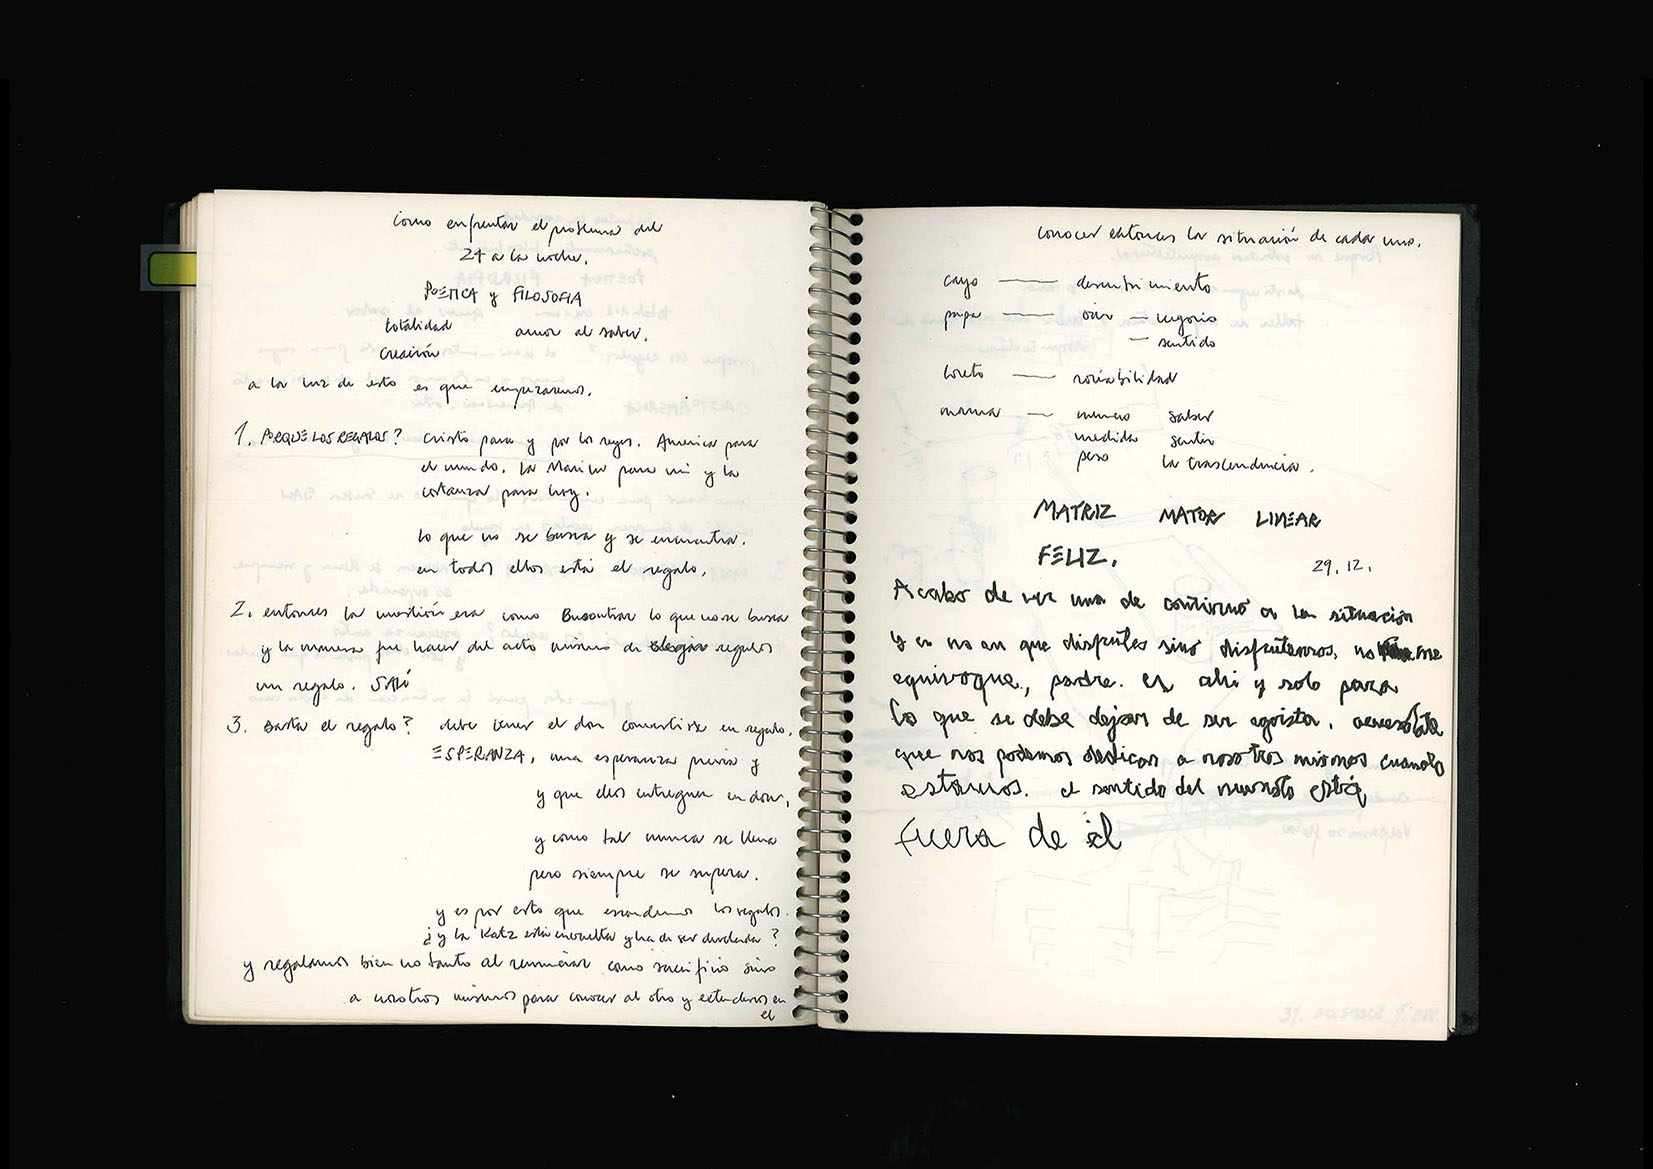 como enfrentar el problema del
24 a la noche.
POETICA y FILOSOFIA
totalidad amor al saber.
creación
a la luz de esto es que empezaremos.
1. PORQUE LOS REGALOS? Cristo para y por los reyes. America para
el mundo. la Marilu para mi y la
costanza para hoy.
lo que no se busca y se encuentra.
en todos ellos está el regalo.
2. entonces la cuestión era como Encontrar lo que no se busca
y la manera fue hacer del acto mismo de elegir regalos
un regalo. SALÍ
3. Basta el regalo? debe tener el don convertirse en regalo.
ESPERANZA, una esperanza previa y
y que ellos entreguen en don,
y como tal nunca se llena
pero siempre se supera.
y es por esto que escondemos los regalos.
¿y la Katz está envuelta y ha de ser develada?
y regalamos bien no tanto al renunciar como sacrificio sino
a nosotros mismos para conocer al otro y extendernos en
el
conocer entonces la situación de cada uno.
cayo descubrimiento
papa oír — negocio
— sentido
loreto sociabilidad
mama — numero saber
medida sentir
peso la trascendencia.
MATRIZ MATOR LINEAR
FELIZ.
29.12.
Acabo de ver una de continuo a la situación
y es no en que disfrutes sino disfrutemos. no me
equivoque, padre. es ahi y solo para
lo que se debe dejar de ser egoista.
que nos podemos dedicar a nosotros mismos cuando
estamos. el sentido del está
fuera de él
31. DICIEMBRE